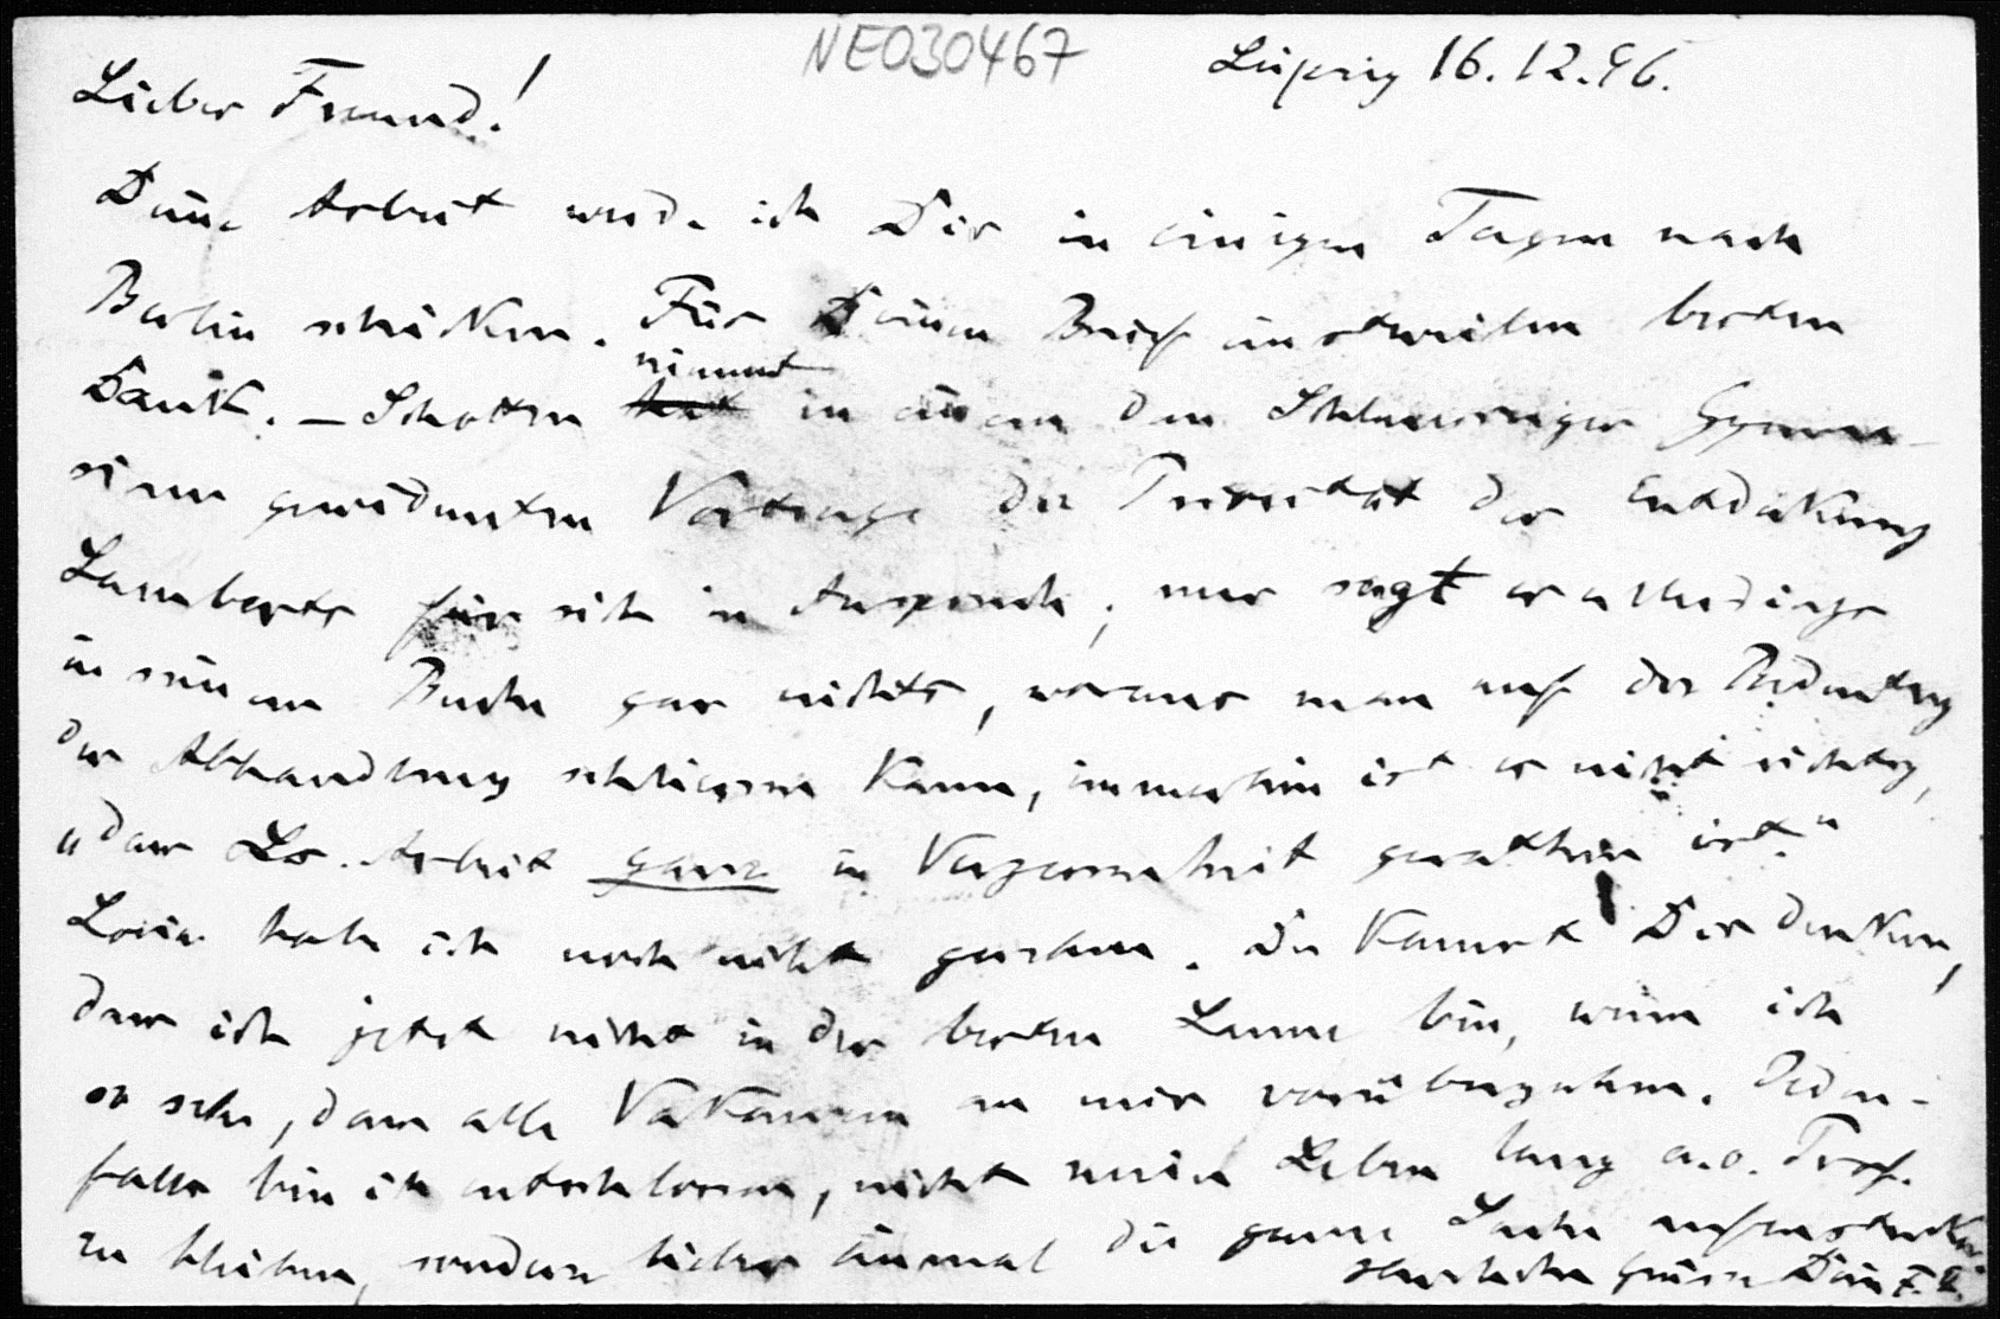 NE030467
Leipzig 16.12.96.
Lieber Freund!
Deine Arbeit werde ich Dir in einigen Tagen nach
Berlin schicken. Für Deinen Brief einstweilen besten
nimmt
Dank. – Schotten hat in einem dem Schleusinger Gymna-
sium gewidmeten Vortrage die Priorität der Entdeckung
Lamberts für sich in Anspruch; nur sagt er allerdings
in seinem Buche gar nichts, woraus man auf die Bedeutung
der Abhandlung schliessen kann, immerhin ist es nicht richtig,
„dass Ls. Arbeit ganz in Vergessenheit gerathen ist."
Loria habe ich noch nicht gesehen. Du kannst Dir denken,
dass ich jetzt nicht in der besten Laune bin, wenn ich
so sehe, dass alle Vakanzen an mir vorübergehen. Jeden-
falls bin ich entschlossen, nicht mein Leben lang a.o. Prof.
zu bleiben, sondern lieber einmal die ganze Sache aufzustecken
Herzliche Grüsse Dein F. E.